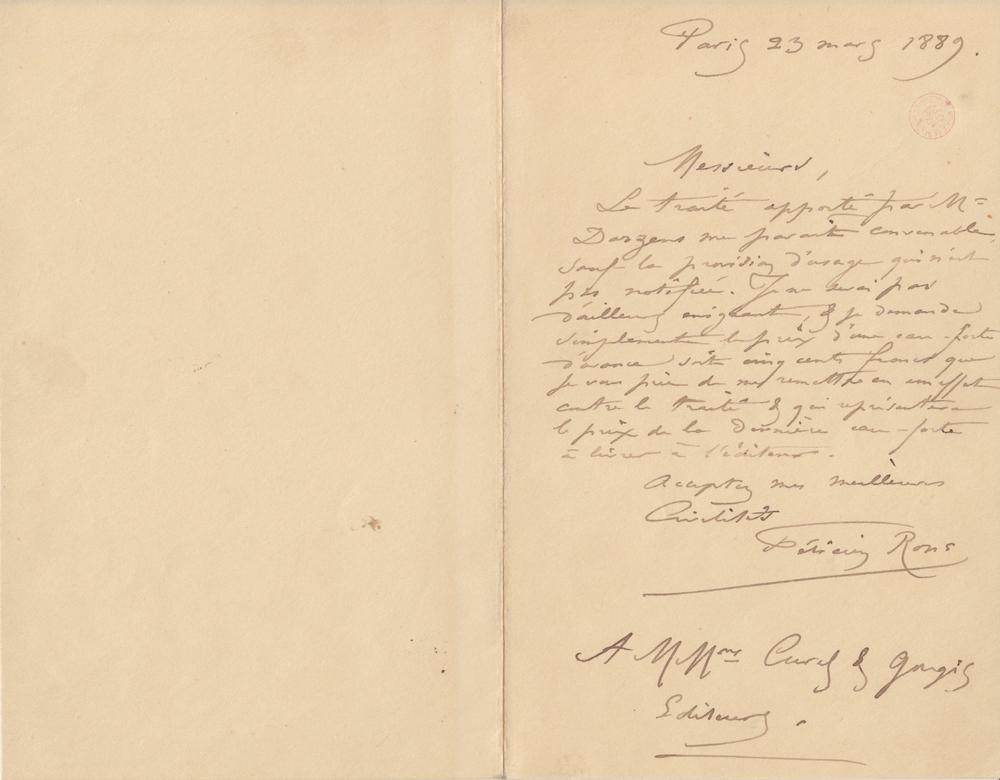 Paris 23 mars 1889.
Messieurs,
Le traité apporté par Mr
Darzens me paraît convenable,
sauf la provision d'usage qui n'est
pas notifiée. Je ne serai pas
d'ailleurs exigeant, & je demande
simplement le prix d'une eau-forte
d'avance soit cinq cents francs que
je vous prie de me remettre en un effet
contre le traité & qui représentera
le prix de la dernière eau-forte
à livrer à l'éditeur.
Acceptez mes meilleures
Civilités
Félicien Rops
A MMrs Curel & Gougis
Editeurs.